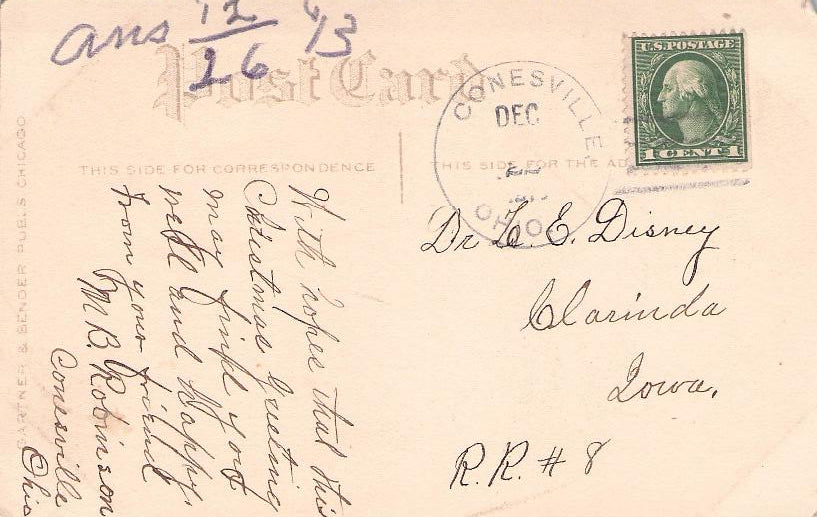 ans 12/26 '13
Post Card
CONESVILLE
DEC
OHIO
U.S. POSTAGE
1 CENT 1
THIS SIDE FOR CORRESPONDENCE
THIS SIDE FOR THE AD
GARTNER & BENDER PUB'LS CHICAGO
With hopes that this
Christmas greeting
may find you
well and Happy.
from your friend
M B. Robinson
Conesville
Ohio
Dr E. Disney
Clarinda
Iowa.
R.R. # 8